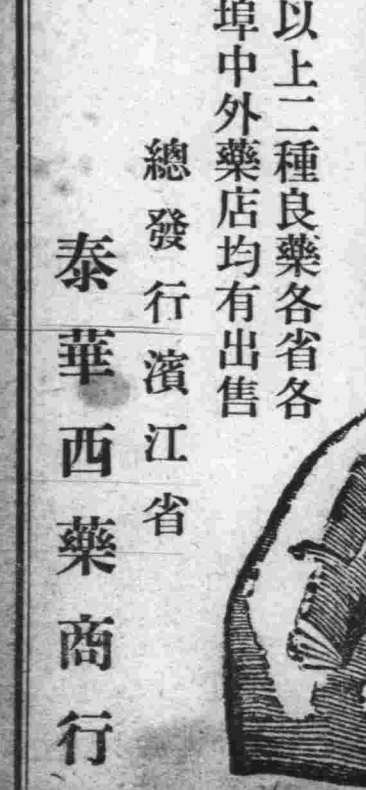 以上二種良藥各省各
埠中外藥店均有出售
總發行濱江省
泰華西藥商行